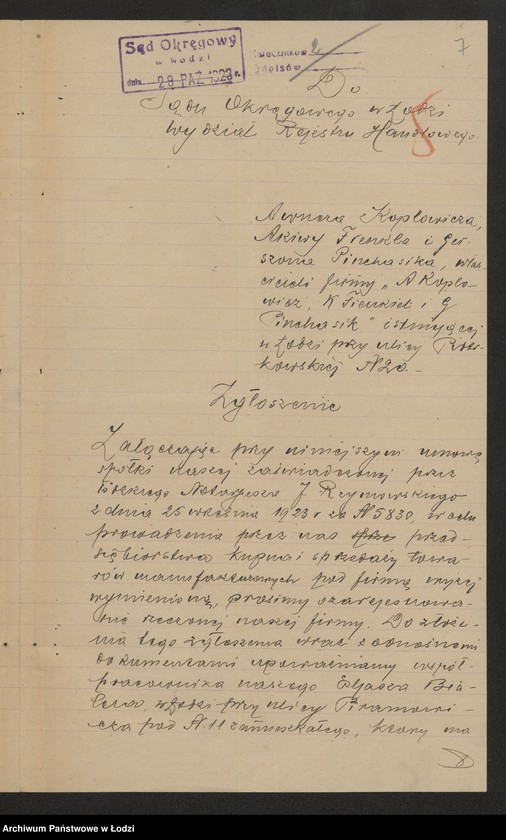 7
Sąd Okręgowy
w Łodzi
dnia 29 PAŹ. 1923 r.
Załączników 2
Odpisów
Do
Sądu Okręgowego w Łodzi
Wydział Rejestru Handlowego.
8
Awnera Koplowicza,
Akiwy Frenkla i Ger-
szona Pinchasika, właś-
cicieli firmy „A Koplo-
wicz, K Frenkiel i G
Pinchasik" istniejącej
w Łodzi przy ulicy Piotr-
kowskiej N 20.-
Zgłoszenie
Załączając przy niniejszym umowę
spółki naszej zaświadczonej przez
Łódzkiego Notarjusza J. Rzymowskiego
z dnia 25 września 1923 r za N 5830, w celu
prowadzenia przez nas przed-
siębiorstwa kupna i sprzedaży towa-
rów manufakturowych pod firmą wyżej
wymienioną, prosimy o zarejestrowa-
nie rzeczonej naszej firmy. Do złoże-
nia tego zgłoszenia wraz z odnośnemi
dokumentami upoważniamy współ-
pracownika naszego Eljasza Bia-
łera, w Łodzi przy ulicy Piramowi-
cza pod N. 11 zamieszkałego, który ma
Archiwum Państwowe w Łodzi